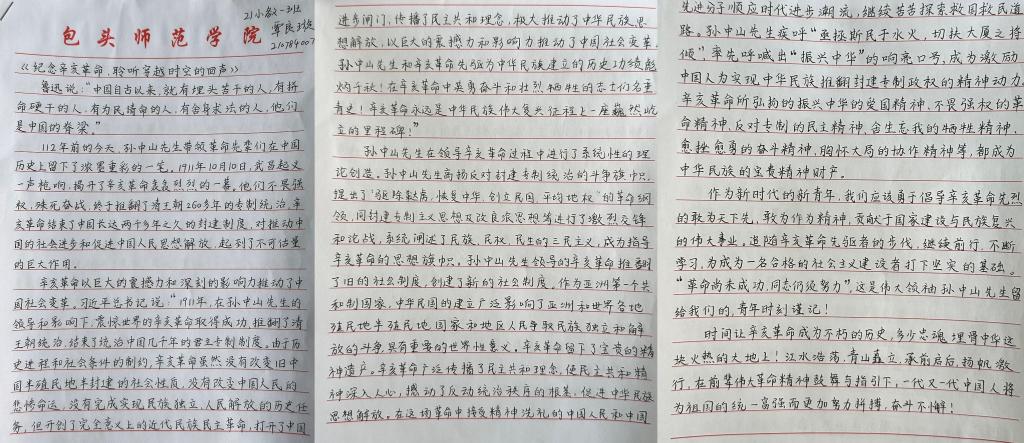 21小教一班
2107840071
包头师范学院
《纪念辛亥革命,聆听穿越时空的回声》
鲁迅说:“中国自古以来,就有埋头苦干的人,有拼
命硬干的人,有为民请命的人,有舍身求法的人,他们
是中国的脊梁。”
112年前的今天,孙中山先生带领革命先辈们在中国
历史上留下了浓墨重彩的一笔,1911年10月10日,武昌起义
一声枪响,揭开了辛亥革命轰轰烈烈的一幕,他们不畏强
权,殊死奋战,终于推翻了清王朝260多年的专制统治,辛
亥革命结束了中国长达两千多年之久的封建制度,对推动中
国的社会进步和促进中国人民思想解放,起到了不可估量
的巨大作用。
辛亥革命以巨大的震撼力和深刻的影响力推动了中
国社会变革。习近平总书记说:“1911年,在孙中山先生的
领导和影响下,震惊世界的辛亥革命取得成功,推翻了清
王朝统治,结束了统治中国几千年的君主专制制度。由于历
史进程和社会条件的制约,辛亥革命虽然没有改变旧中
国半殖民地半封建的社会性质,没有改变中国人民的
悲惨命运,没有完成实现民族独立、人民解放的历史任
务,但开创了完全意义上的近代民族民主革命,打开了中国
进步闸门,传播了民主共和理念,极大推动了中华民族思
想解放,以巨大的震撼力和影响力推动了中国社会变革。
孙中山先生和辛亥革命先驱为中华民族建立的历史功绩彪
炳千秋!在辛亥革命中英勇奋斗和壮烈牺牲的志士们名垂
青史!辛亥革命永远是中华民族伟大复兴征程上一座巍然屹
立的里程碑!”
孙中山先生在领导辛亥革命过程中进行了系统性的理
论创造。孙中山先生高扬反对封建专制统治的斗争旗帜,
提出了“驱除鞑虏,恢复中华,创立民国,平均地权”的革命纲
领,同封建专制主义思想及改良派思想等进行了激烈交锋
和论战,系统阐述了民族、民权、民生的三民主义,成为指导
辛亥革命的思想旗帜。孙中山先生领导的辛亥革命推翻
了旧的社会制度,创建了新的社会制度。作为亚洲第一个共
和制国家,中华民国的建立广泛影响了亚洲和世界各地
殖民地半殖民地国家和地区人民争取民族独立和解
放的斗争,具有重要的世界性意义。辛亥革命留下了宝贵的精
神遗产。辛亥革命广泛传播了民主共和理念,使民主共和精
神深入人心,撼动了反动统治秩序的根基,促进中华民族
思想解放。在这场革命中接受精神洗礼的中国人民和中国
先进分子顺应时代进步潮流,继续苦苦探索救国救民道
路。孙中山先生疾呼“亟拯斯民于水火,切扶大厦之将
倾”,率先呼喊出“振兴中华”的响亮口号,成为激励
中国人为实现中华民族推翻封建专制政权的精神动力。
辛亥革命所弘扬的振兴中华的爱国精神、不畏强权的革
命精神、反对专制的民主精神、舍生忘我的牺牲精神、
愈挫愈勇的奋斗精神、胸怀大局的协作精神等,都成为
中华民族的宝贵精神财产。
作为新时代的新青年,我们应该勇于倡导辛亥革命先烈
的敢为天下先,敢为作为精神,贡献于国家建设与民族复兴
的伟大事业,追随辛亥革命先驱者的步伐,继续前行,不断
学习,为成为一名合格的社会主义建设者打下坚实的基础。
“革命尚未成功,同志们须努力”,这是伟大领袖孙中山先生留
给我们的,青年时刻谨记!
时间让辛亥革命成为不朽的历史,多少忠魂埋骨中华这
块火热的大地上!江水浩荡,青山矗立,承前启后,扬帆激
行,在前辈伟大革命精神鼓舞与指引下,一代又一代中国人将
为祖国的统一富强而更加努力拼搏,奋斗不懈!